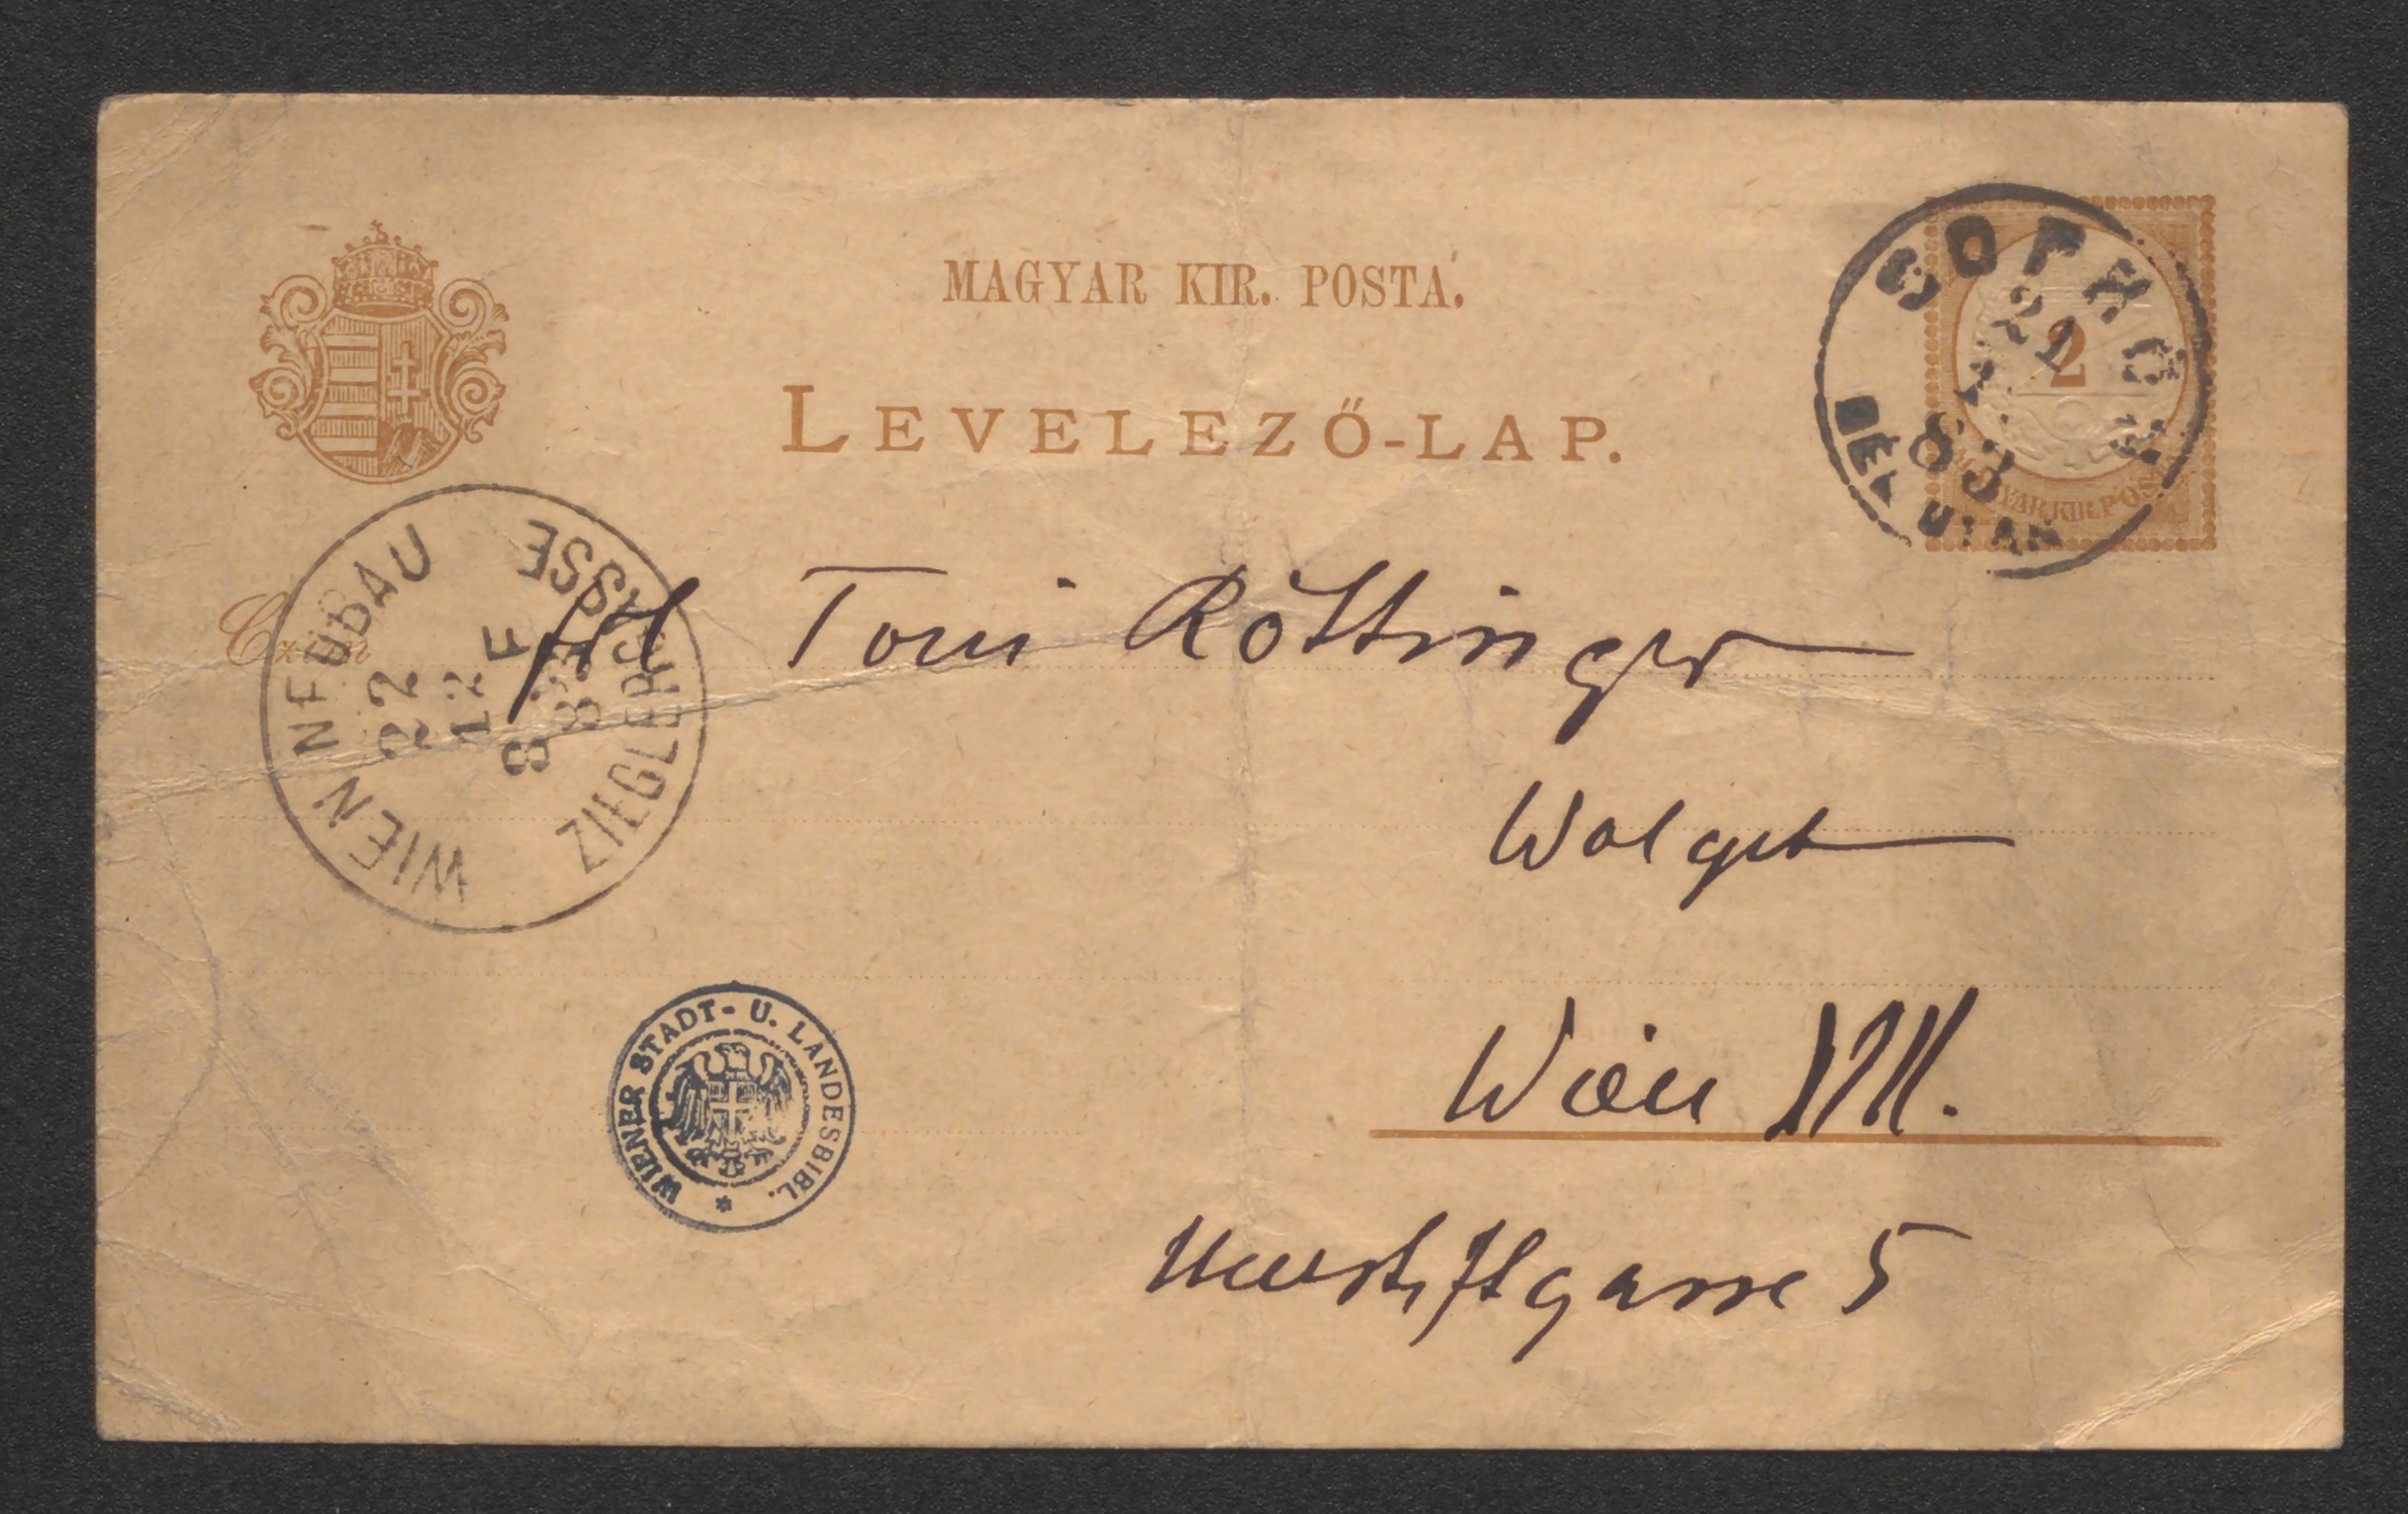 MAGYAR KIR. POSTA.
LEVELEZŐ-LAP.
SOPRON
21
83
2
MAGYAR KIR. POSTA
Czim
Frl Toni Röttinger
Wolgeb
Wien VII.
Neustiftgasse 5
WIEN NEUBAU
ZIEGLERGASSE
22
12
8 F
83
WIENER STADT- U. LANDESBIBL.